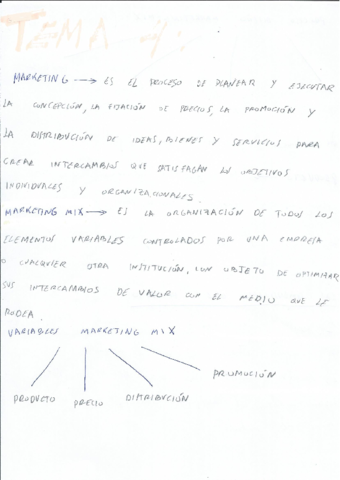 TEMA 1:
MARKETING → ES EL PROCESO DE PLANEAR Y EJECUTAR
LA CONCEPCIÓN, LA FIJACIÓN DE PRECIOS, LA PROMOCIÓN Y
LA DISTRIBUCIÓN DE IDEAS, BIENES Y SERVICIOS PARA
CREAR INTERCAMBIOS QUE SATISFAGAN LOS OBJETIVOS
INDIVIDUALES Y ORGANIZACIONALES.
MARKETING MIX → ES LA ORGANIZACIÓN DE TODOS LOS
ELEMENTOS VARIABLES CONTROLADOS POR UNA EMPRESA
O CUALQUIER OTRA INSTITUCIÓN, CON OBJETO DE OPTIMIZAR
SUS INTERCAMBIOS DE VALOR CON EL MEDIO QUE LE
RODEA.
VARIABLES MARKETING MIX
PRODUCTO PRECIO DISTRIBUCIÓN PROMOCIÓN